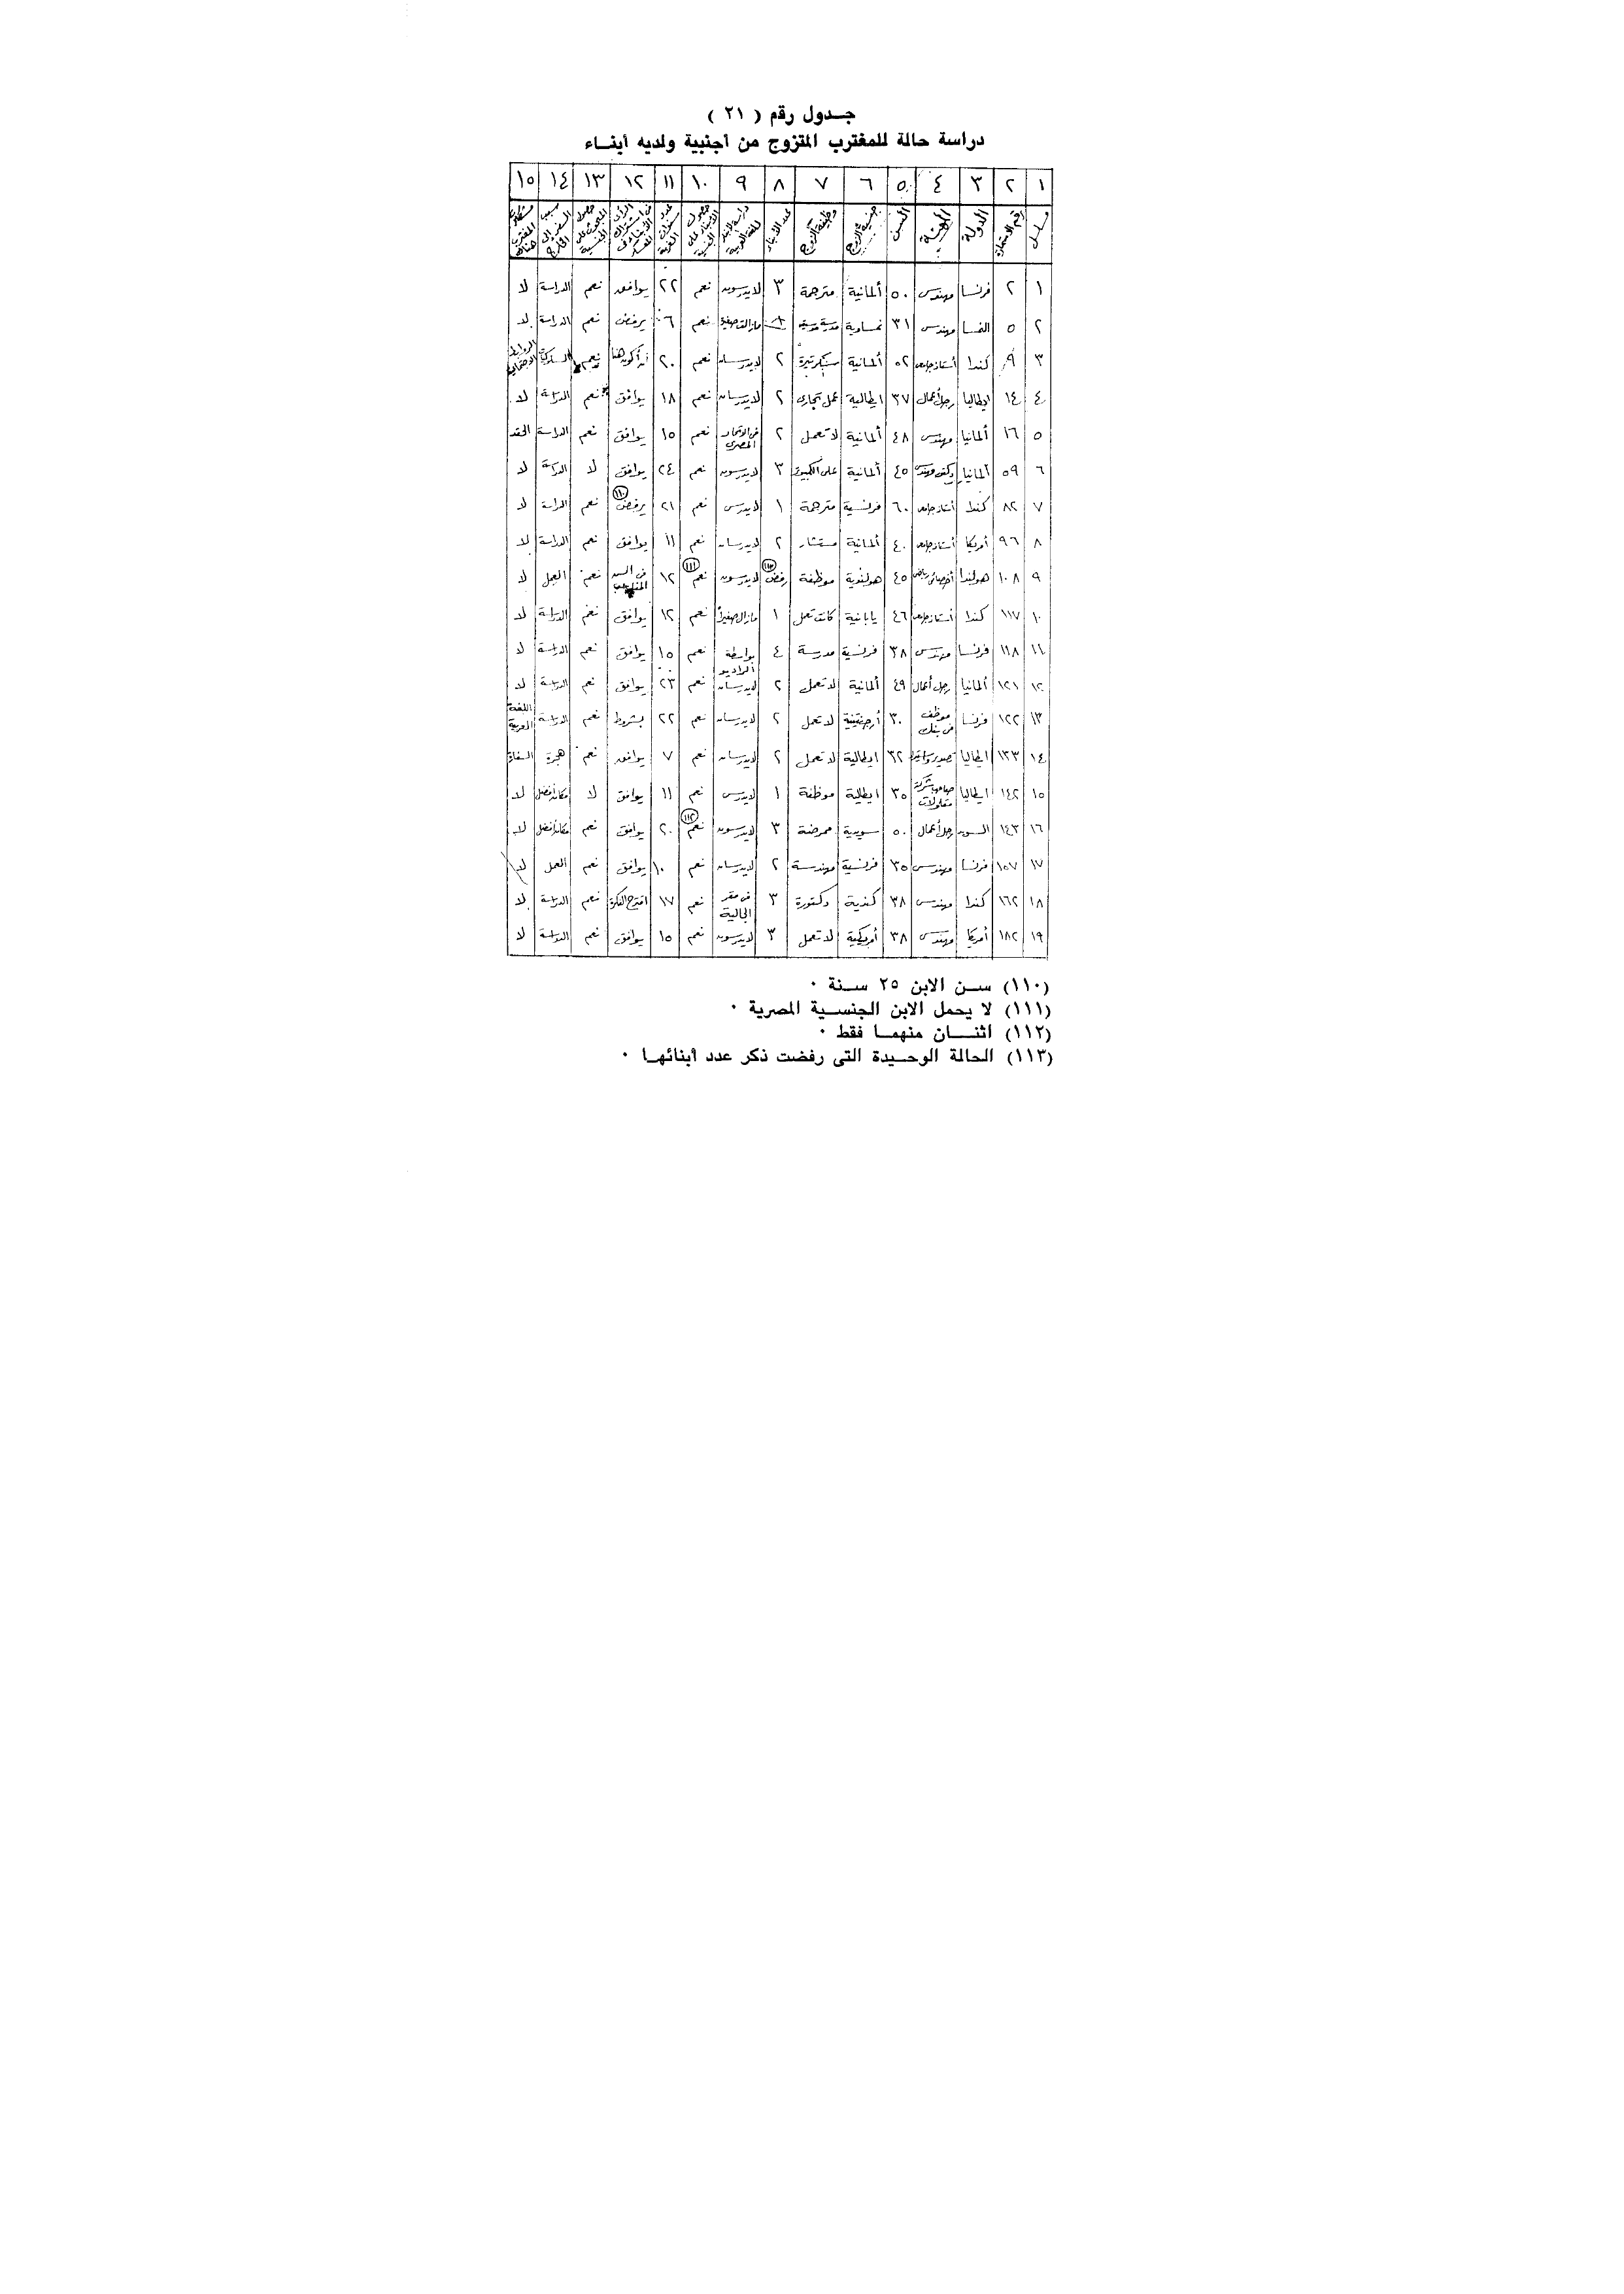 جدول رقم ( ٢١ )
دراسة حالة للمغترب المتزوج من أجنبية ولديه أبناء
١ ٢ ٣ ٤ ٥ ٦ ٧ ٨ ٩ ١٠ ١١ ١٢ ١٣ ١٤ ١٥
مسلسل رقم الاستمارة الدولة المهنة السن جنسية الزوج وظيفة الزوج عدد الأبناء
١ ٢ فرنسا مهندس ٥٠ ألمانية مترجمة ٣ لايدرسون نعم ٢٢ يوافق نعم الدراسة لا
٢ ٥ النمسا مهندس ٣١ نمساوية نعم ٦ يرفض نعم الدراسة لا
٣ ٩ كندا أستاذ جامعى ٥٢ ألمانية سكرتيرة ٢ لايدرسان نعم ٢٠ نعم
٤ ١٤ ايطاليا رجل أعمال ٣٧ ايطالية عمل تجارى ٢ لايدرسان نعم ١٨ يوافق نعم الدراسة لا
٥ ١٦ ألمانيا مهندس ٤٨ ألمانية لاتعمل ٢ فى الاتحاد المصرى نعم ١٥ يوافق نعم الدراسة الحقد
٦ ٥٩ ألمانيا ٤٥ ألمانية على الكمبيوتر ٣ لايدرسون نعم ٢٤ يوافق لا الدراسة لا
٧ ٨٢ كندا أستاذ جامعى ٦٠ فرنسية مترجمة ١ لايدرس نعم ٢١ يرفض (١١٠) نعم الدراسة لا
٨ ٩٦ أمريكا أستاذ جامعى ٤٠ ألمانية مستشار ٢ لايدرسان نعم ١١ يوافق نعم الدراسة لا
٩ ١٠٨ هولندا أخصائى رياضى ٤٥ هولندية موظفة رفض (١١٣) لايدرسون نعم (١١١) ١٢ فى السن نعم العمل لا
١٠ ١١٧ كندا أستاذ جامعى ٤٦ يابانية كانت تعمل ١ مازال صغيرا نعم ١٢ يوافق نعم الدراسة لا
١١ ١١٨ فرنسا مهندس ٣٨ فرنسية مدرسة ٤ بواسطة الراديو نعم ١٥ يوافق نعم الدراسة لا
١٢ ١٢١ ألمانيا رجل أعمال ٤٩ ألمانية لاتعمل ٢ لايدرسان نعم ٢٣ يوافق نعم الدراسة لا
١٣ ١٢٢ فرنسا موظف فى بنك ٣٠ أرجنتينية لاتعمل ٢ لايدرسان نعم ٢٢ بشروط نعم الدراسة اللغة العربية
١٤ ١٣٣ ايطاليا ٣٢ ايطالية لاتعمل ٢ لايدرسان نعم ٧ يوافق نعم هجرة السفارة
١٥ ١٤٢ ايطاليا ٣٥ ايطالية موظفة ١ لايدرس نعم ١١ يوافق لا مكان أفضل لا
١٦ ١٤٣ السويد رجل أعمال ٥٠ سويدية ممرضة ٣ لايدرسون نعم (١١٢) ٢٠ يوافق نعم مكان أفضل لا
١٧ ١٥٧ فرنسا مهندس ٣٥ فرنسية مهندسة ٢ لايدرسان نعم ١٠ يوافق نعم العمل لا
١٨ ١٦٢ كندا مهندس ٣٨ كندية دكتورة ٣ فى مقر الجالية نعم ١٧ اقترح الفكرة نعم الدراسة لا
١٩ ١٨٢ أمريكا مهندس ٣٨ أمريكية لاتعمل ٣ لايدرسون نعم ١٥ يوافق نعم الدراسة لا
(١١٠) سن الابن ٢٥ سنة ٠
(١١١) لا يحمل الابن الجنسية المصرية ٠
(١١٢) اثنان منهما فقط ٠
(١١٣) الحالة الوحيدة التى رفضت ذكر عدد أبنائها ٠